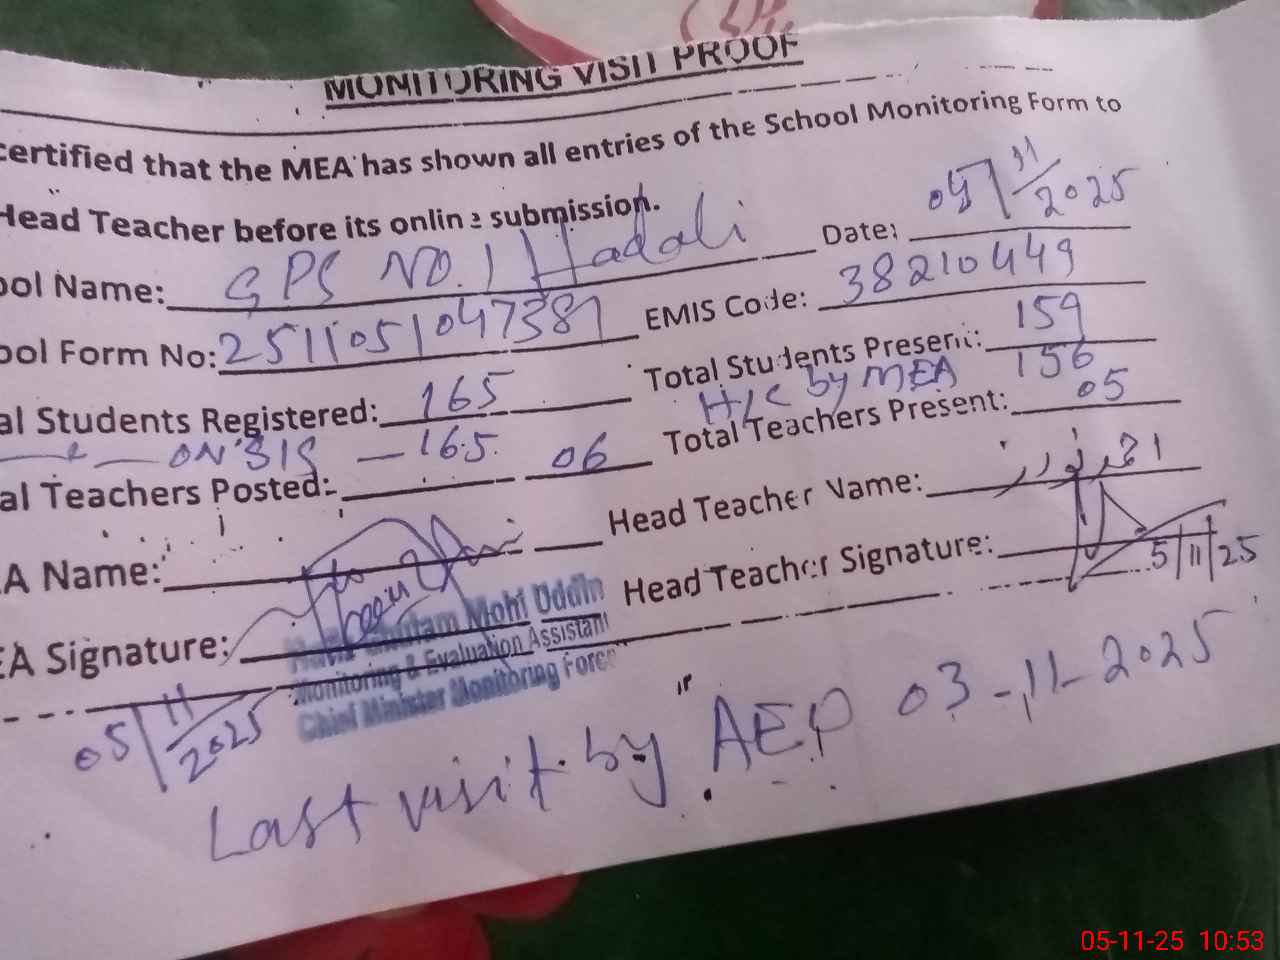 MONITORING VISIT PROOF
certified that the MEA has shown all entries of the School Monitoring Form to
Head Teacher before its online submission.
ool Name: GPS NO.1 Hadali Date: 05/11/2025
ool Form No: 2511051047381 EMIS Code: 38210449
al Students Registered: 165 Total Students Present: 159
ON SIS - 165 H/C by MEA 156
al Teachers Posted: 06 Total Teachers Present: 05
A Name: Head Teacher Name:
EA Signature: Head Teacher Signature: 5/11/25
Mohi Uddin
Monitoring & Evaluation Assistant
Chief Minister Monitoring Force
05/11/2025
Last visit by AEO 03-11-2025
05-11-25 10:53